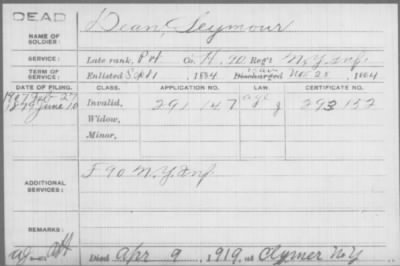 DEAD
NAME OF SOLDIER: Dean, Seymour
SERVICE: Late rank, Pvt Co. H, 90 Regt N.Y. Inf.
TERM OF SERVICE: Enlisted Sept 1, 1864 Discharged Nov 28, 1864
DATE OF FILING. CLASS. APPLICATION NO. LAW. CERTIFICATE NO.
1879 June 10 Invalid, 291 147 293 152
Widow,
Minor,
ADDITIONAL SERVICES: F 90 N.Y. Inf
REMARKS:
Died Apr 9, 1919, at Clymer N.Y.